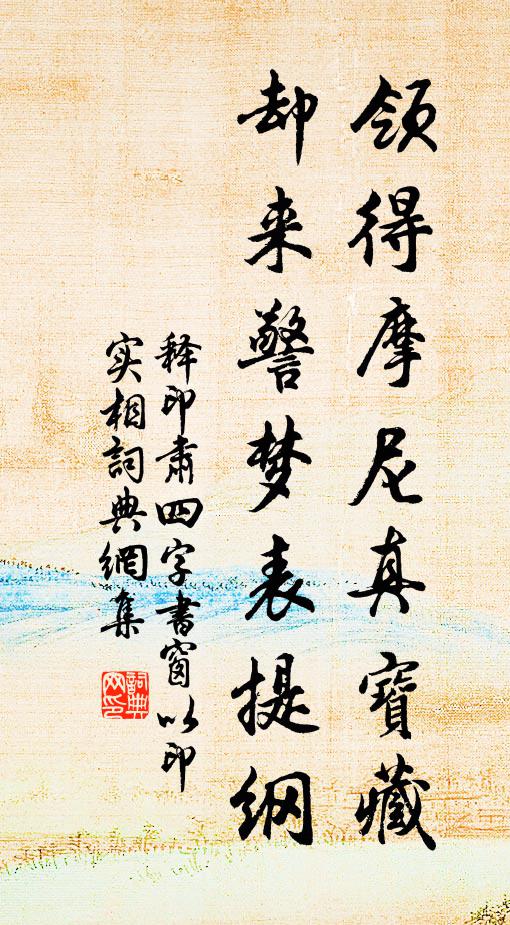 领得摩尼真寶藏
却来警梦表提纲
释印肃四字書窗以印
实相詞典網集
詞典网印